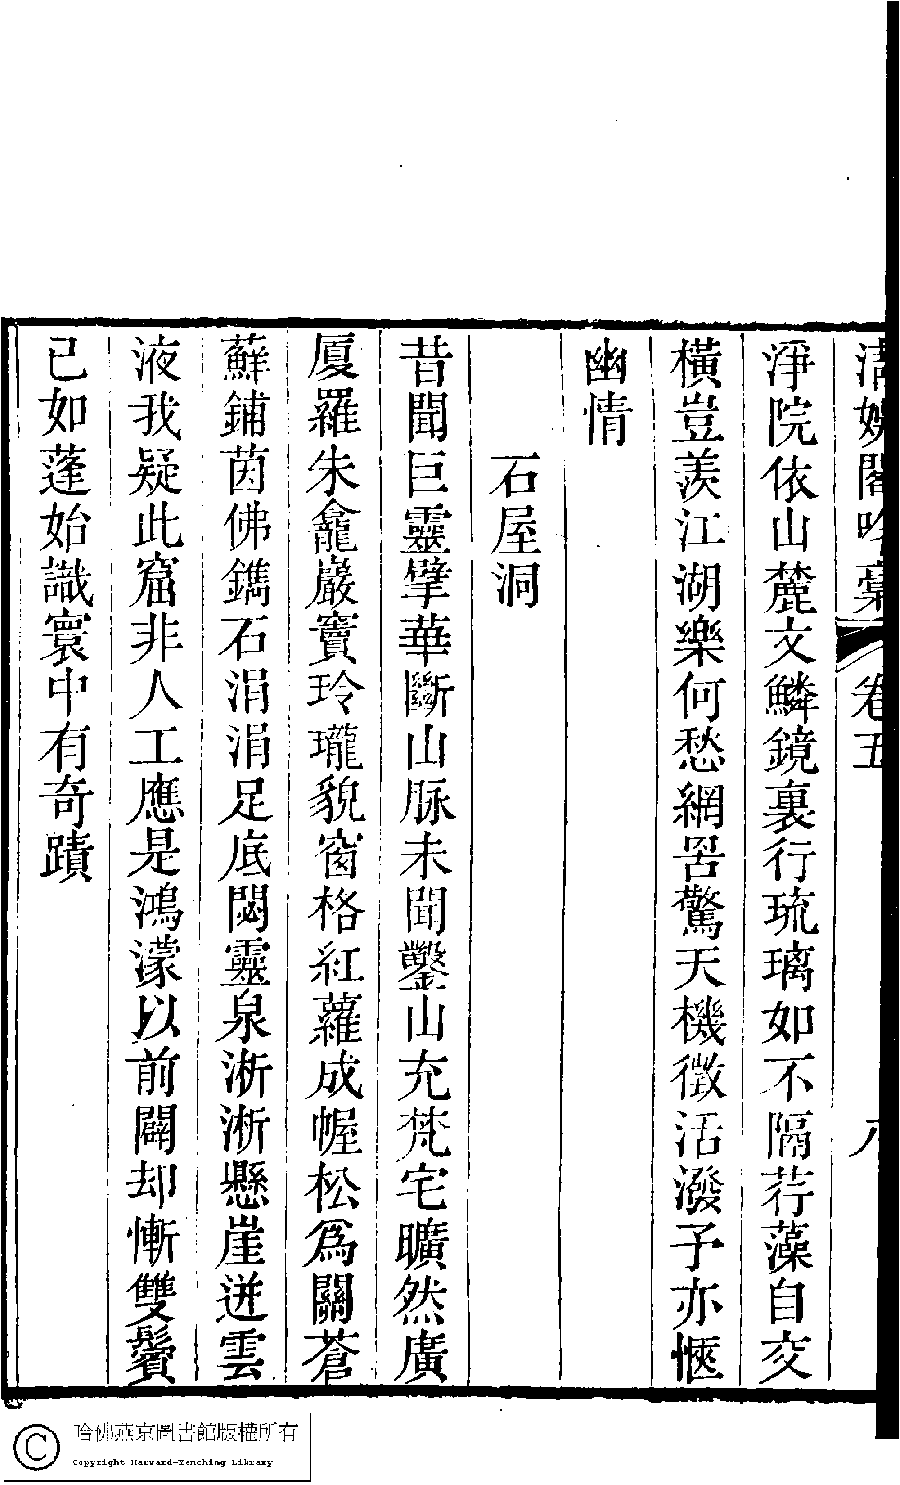 清娛閣吟稾 卷五 八
淨院依山麓文鱗鏡裏行琉璃如不隔荇藻自交
橫豈羨江湖樂何愁網罟驚天機徴活潑予亦愜
幽情
石屋洞
昔聞巨靈擘華斷山脈未聞鑿山充梵宅曠然廣
厦羅朱龕巖竇玲瓏貌窗格紅蘿成幄松爲關蒼
蘚鋪茵佛鐫石涓涓足底閟靈泉淅淅懸崖迸雲
液我疑此窟非人工應是鴻濛以前闢却慚雙鬢
已如蓬始識寰中有奇蹟
哈佛燕京圖書館版權所有
Copyright Harvard-Yenching Library